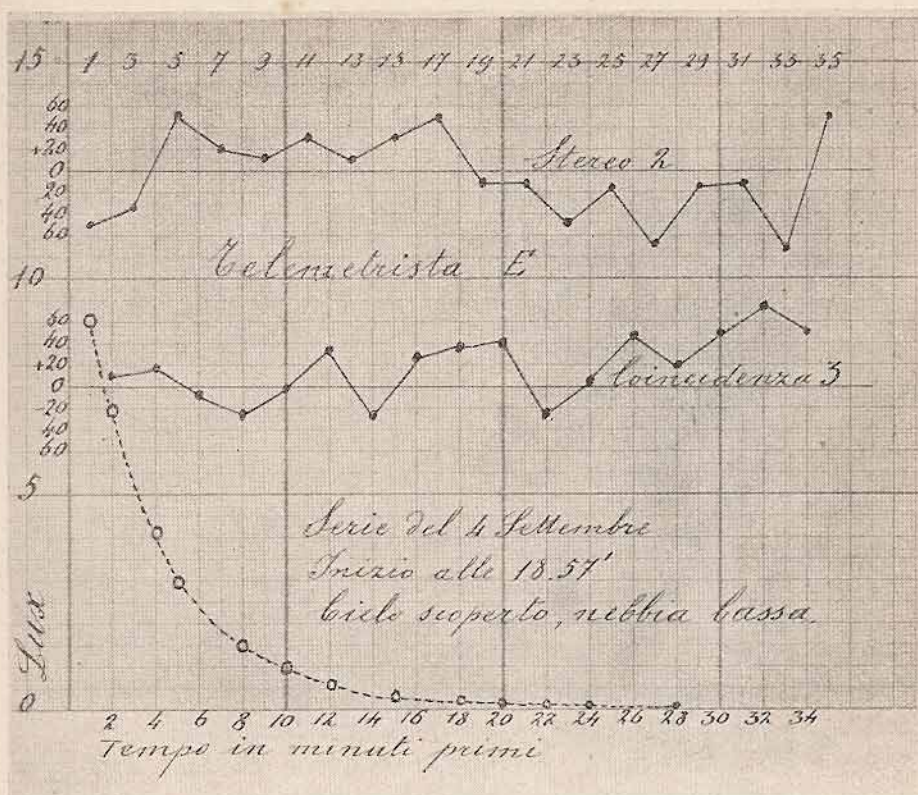 15 1 3 5 7 9 11 13 15 17 19 21 23 25 27 29 31 33 35
60
40
+20
0
20
40
60
Stereo 2
Telemetrista E
10
60
40
+20
0
-20
40
60
Coincidenza 3
5
Serie del 4 Settembre
Inizio alle 18.57'
Cielo scoperto, nebbia bassa.
Lux
0
2 4 6 8 10 12 14 16 18 20 22 24 26 28 30 32 34
Tempo in minuti primi